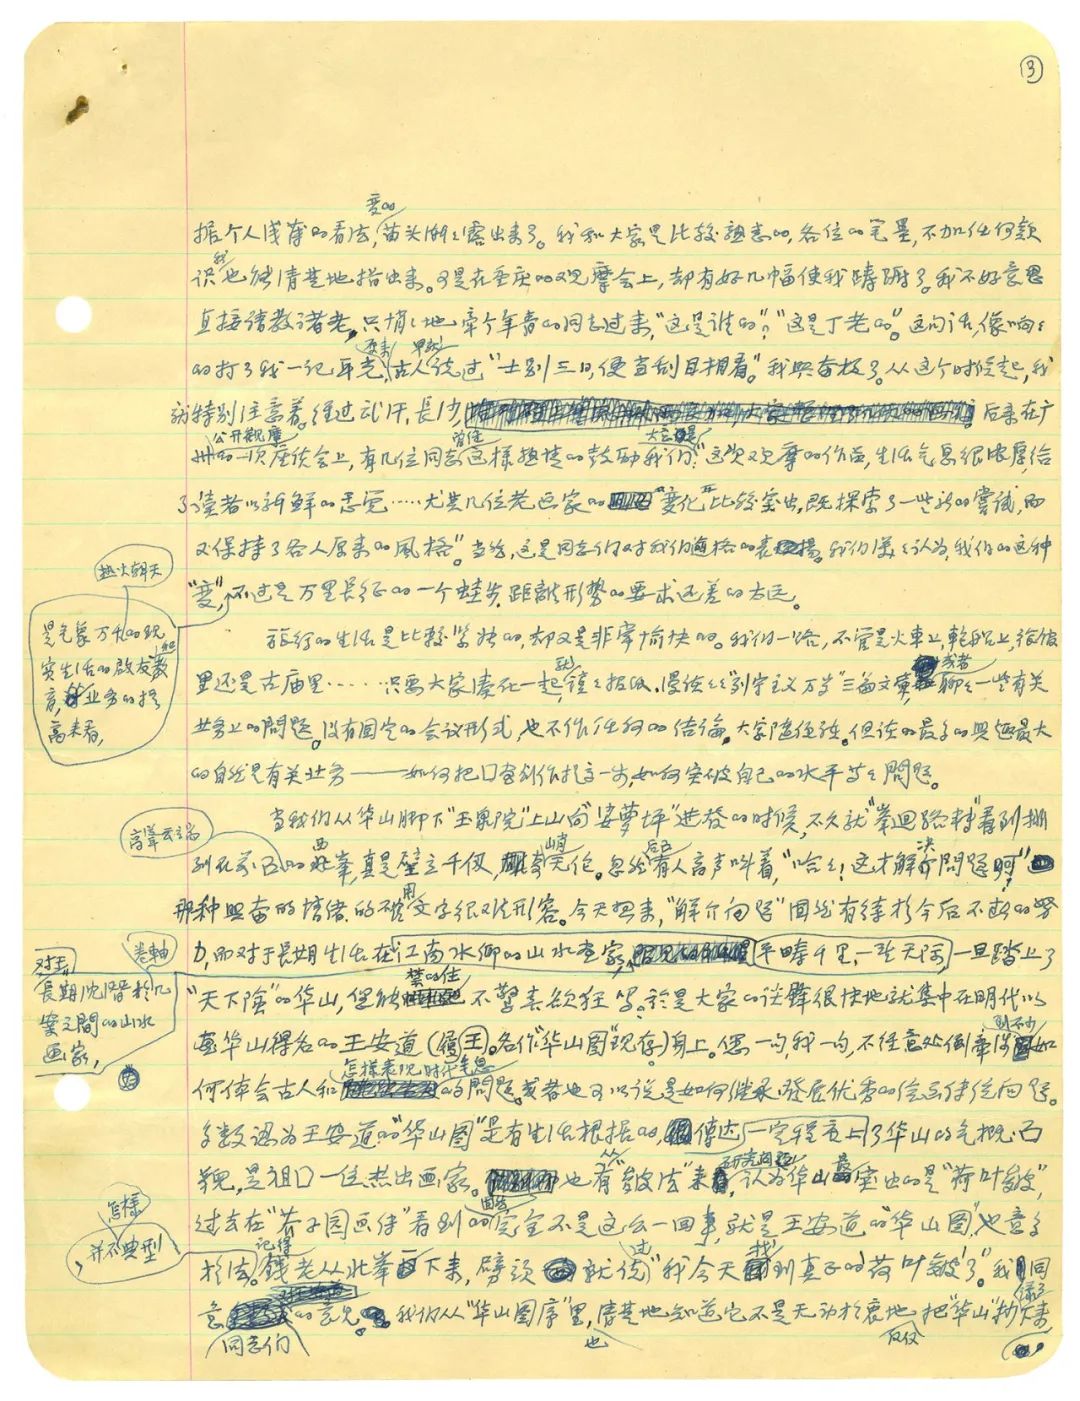 ③
变的
据个人浅薄的看法,苗头渐渐露出来了。我和大家是比较熟悉的,各位的笔墨,不加任何款
我
识也能清楚地指出来。可是在重庆的观摩会上,却有好几幅使我踌躇了。我不好意思
直接请教诸老,只悄悄地牵个年青的同志过来,“这是谁的”?“这是丁老的”。这句话,像响响
的打了我一记耳光,古人说过“士别三日,便当刮目相看。”我兴奋极了。从这个时候起,我
就特别注意着。经过武汉,长沙, 后来在广
公开觀摩 曾经
州的一次座谈会上,有几位同志这样热情的鼓励我们:“这次观摩的作品,生活气息很浓厚,给
了读者以新鲜的感觉……尤其几位老画家的“变化”比较突出,既探索了一些新的尝试,而
又保持了各人原来的風格”。当然,这是同志们对我们的表揚。我们认为,我们的这种
“变”,不过是万里长征的一个蛙步,距離形势的要求还差的太远。
热火朝天
是气象万千的现
实生活的启发教
育,业务的提
高来看,
旅行的生活是比较紧张的,却又是非常愉快的。我们一路,不管是火車上,轮船上,旅馆
或者
里还是古庙里……只要大家凑在一起,就读读报纸,漫谈“列宁主义万岁”三篇文章,聊聊一些有关
业务上的问题。没有固定的会议形式,也不作任何的结论。大家随便谈。但谈的最多的興趣最大
的自然是有关业务——如何把口画创作提高一步,如何突破自己的水平等等问题。
当我们从华山脚下“玉泉院”上山向“娑萝坪”进發的时候,不久就“峯迴路转”看到掤
高聳云端
到 的西峯,真是壁立千仭,峭無伦。忽然后面有人高声叫着,“哈哈!这才解决问题啊!”
那种興奋的情绪,的确用文字很难形容。今天想来,“解决问题”固然有待於今后不断的努
力,而对于長期生活在江南水鄉的山水画家, 平畴千里,一望无际,一旦踏上了
卷軸
对于
長期沉潛於几
案之間的山水
画家,
“天下險”的华山,怎能禁的住不驚喜欲狂 。於是大家的谈鋒很快地就集中在明代以
画华山得名的王安道(履)王。各作“华山图”现存)身上。您一句,我一句,不经意处倒牵涉到不少如
怎样表现时代气息
何体会古人和 的問题。或者也可以说是如何继承、發展优秀的绘画传统问题。
多数认为王安道的“华山图”是有生活根据的,傳达一定程度上了华山的气概、面
貌,是祖口一位杰出画家。 也有从“皴法”来研究问题,认为华山最突出的是“荷叶皴”,
过去在“芥子园画传”看到的 完全不是这么一回事,就是王安道的“华山图”,也意多
怎样
,并不典型
於法。记得錢老从北峯一下来,劈頭就说过“我今天找到真正的荷叶皴了”。我同
意同志们的意见。我们从“华山图序”里,清楚地知道它不是无动於衷地把“华山”抄
也 仅仅